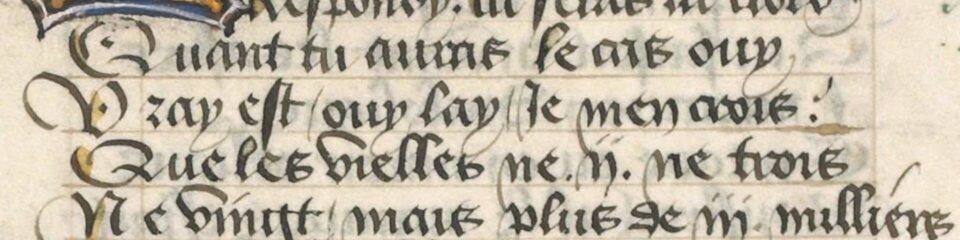 Respondy. tu seras
Quant tu auras le cas ouy
Vray est / ouy lay / Je men crois :
Que les vielles ne .ii. ne trois
Ne vingt / mais plus de iii milliers